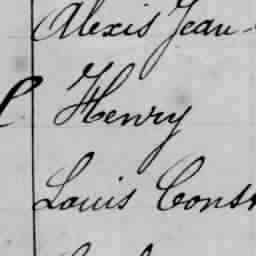 Alexis Jean-
Henry
Louis Cons